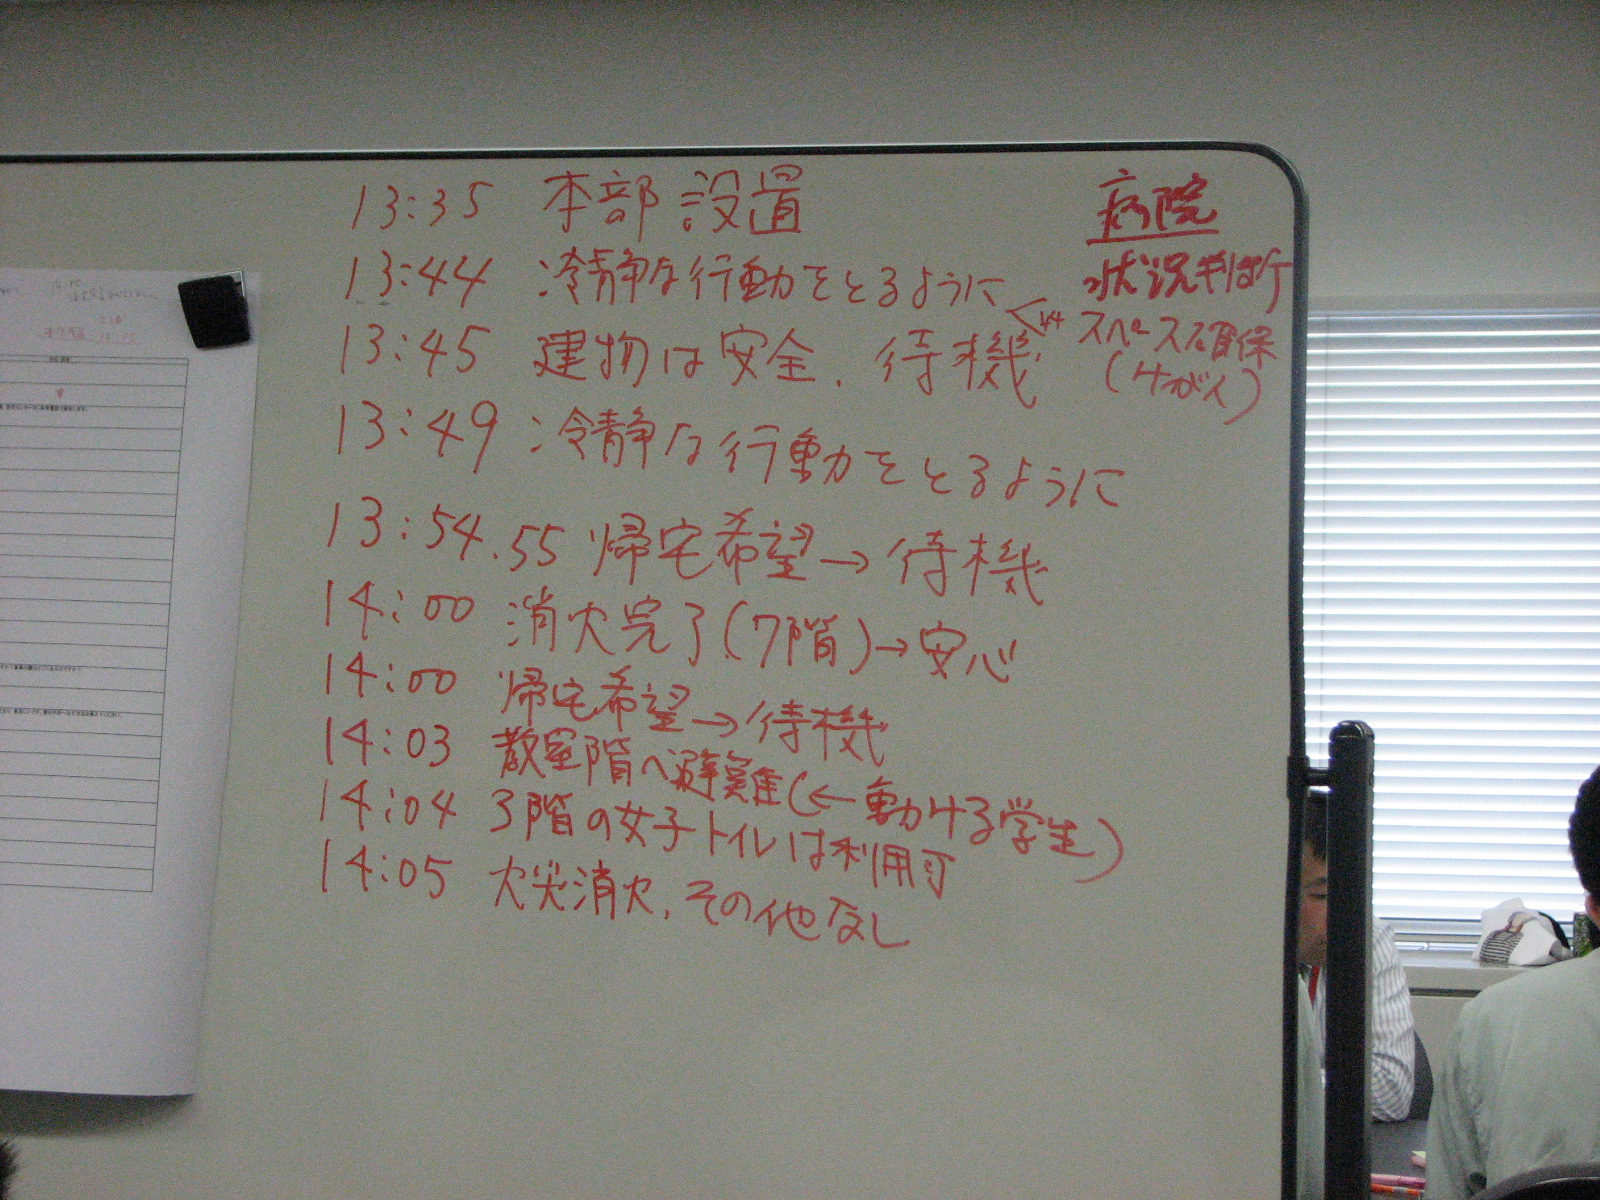 13:35 本部設置
13:44 冷静な行動をとるように
13:45 建物は安全. 待機
13:49 冷静な行動をとるように
13:54.55 帰宅希望→待機
14:00 消火完了(7階)→安心
14:00 帰宅希望→待機
14:03 教室階へ避難(←動ける学生)
14:04 3階の女子トイレは利用可
14:05 火災消火, その他なし
病院
状況判断
スペース確保
(けが人)